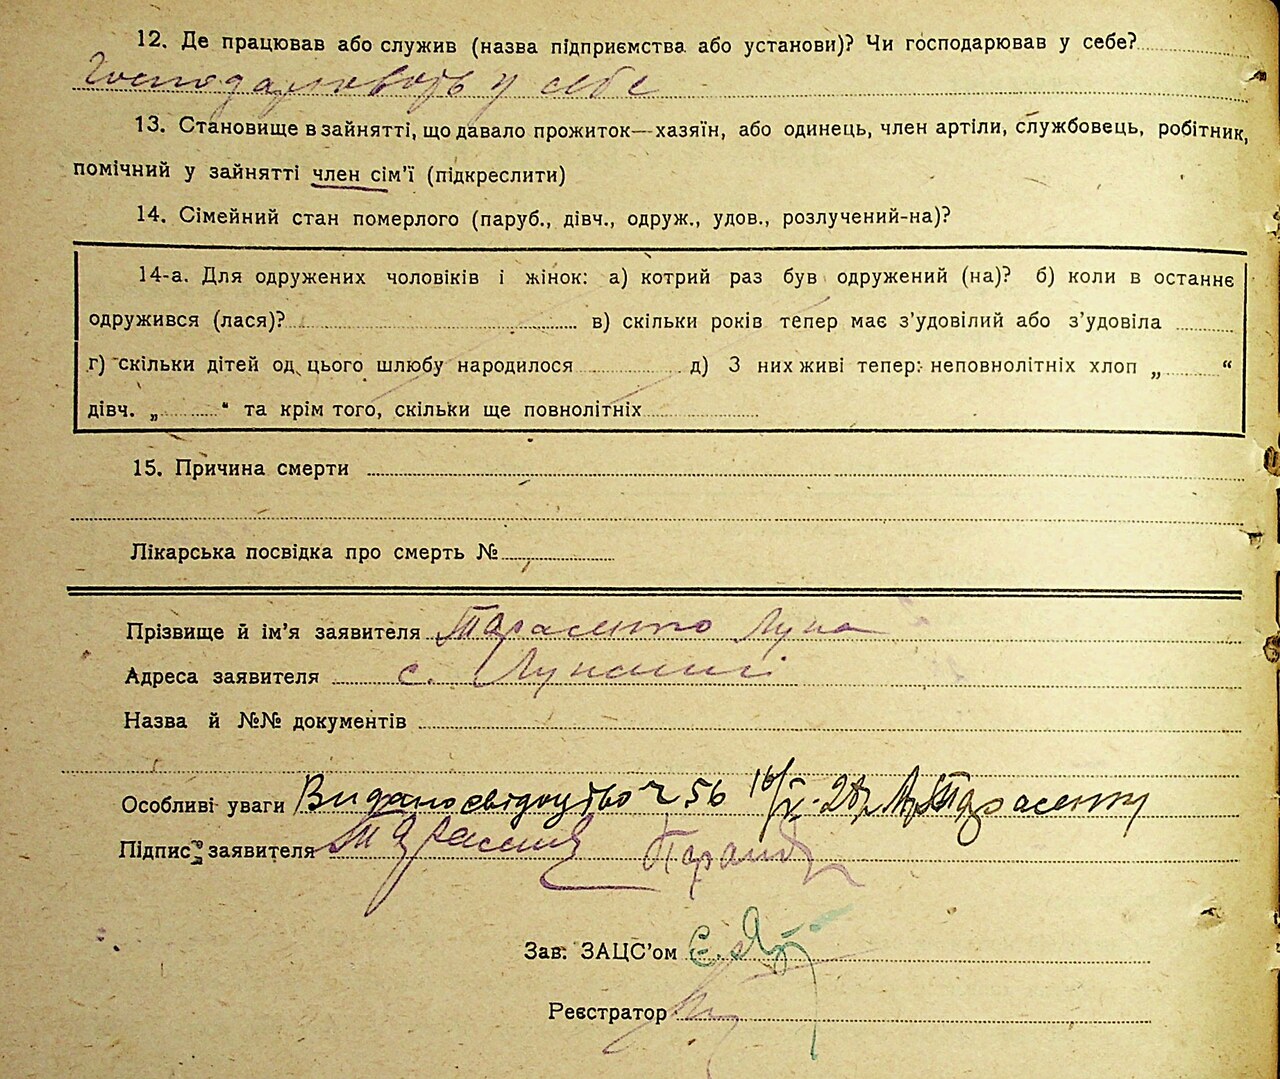 12. Де працював або служив (назва підприємства або установи)? Чи господарював у себе?
Господарювать у себе
13. Становище в зайнятті, що давало прожиток—хазяїн, або одинець, член артіли, службовець, робітник,
помічний у зайнятті член сім'ї (підкреслити)
14. Сімейний стан померлого (паруб., дівч., одруж., удов., розлучений-на)?
14-а. Для одружених чоловіків і жінок: а) котрий раз був одружений (на)? б) коли в останнє
одружився (лася)? в) скільки років тепер має з'удовілий або з'удовіла
г) скільки дітей од цього шлюбу народилося д) З них живі тепер: неповнолітніх хлоп „ “
дівч. „ “ та крім того, скільки ще повнолітніх
15. Причина смерти
Лікарська посвідка про смерть №
Прізвище й ім'я заявителя Тарасенко Лука
Адреса заявителя с.
Назва й №№ документів
Особливі уваги Видано свідоцтво ч 56 16/V-28 Тарасенку
Підпис заявителя
Зав. ЗАЦС'ом
Реєстратор